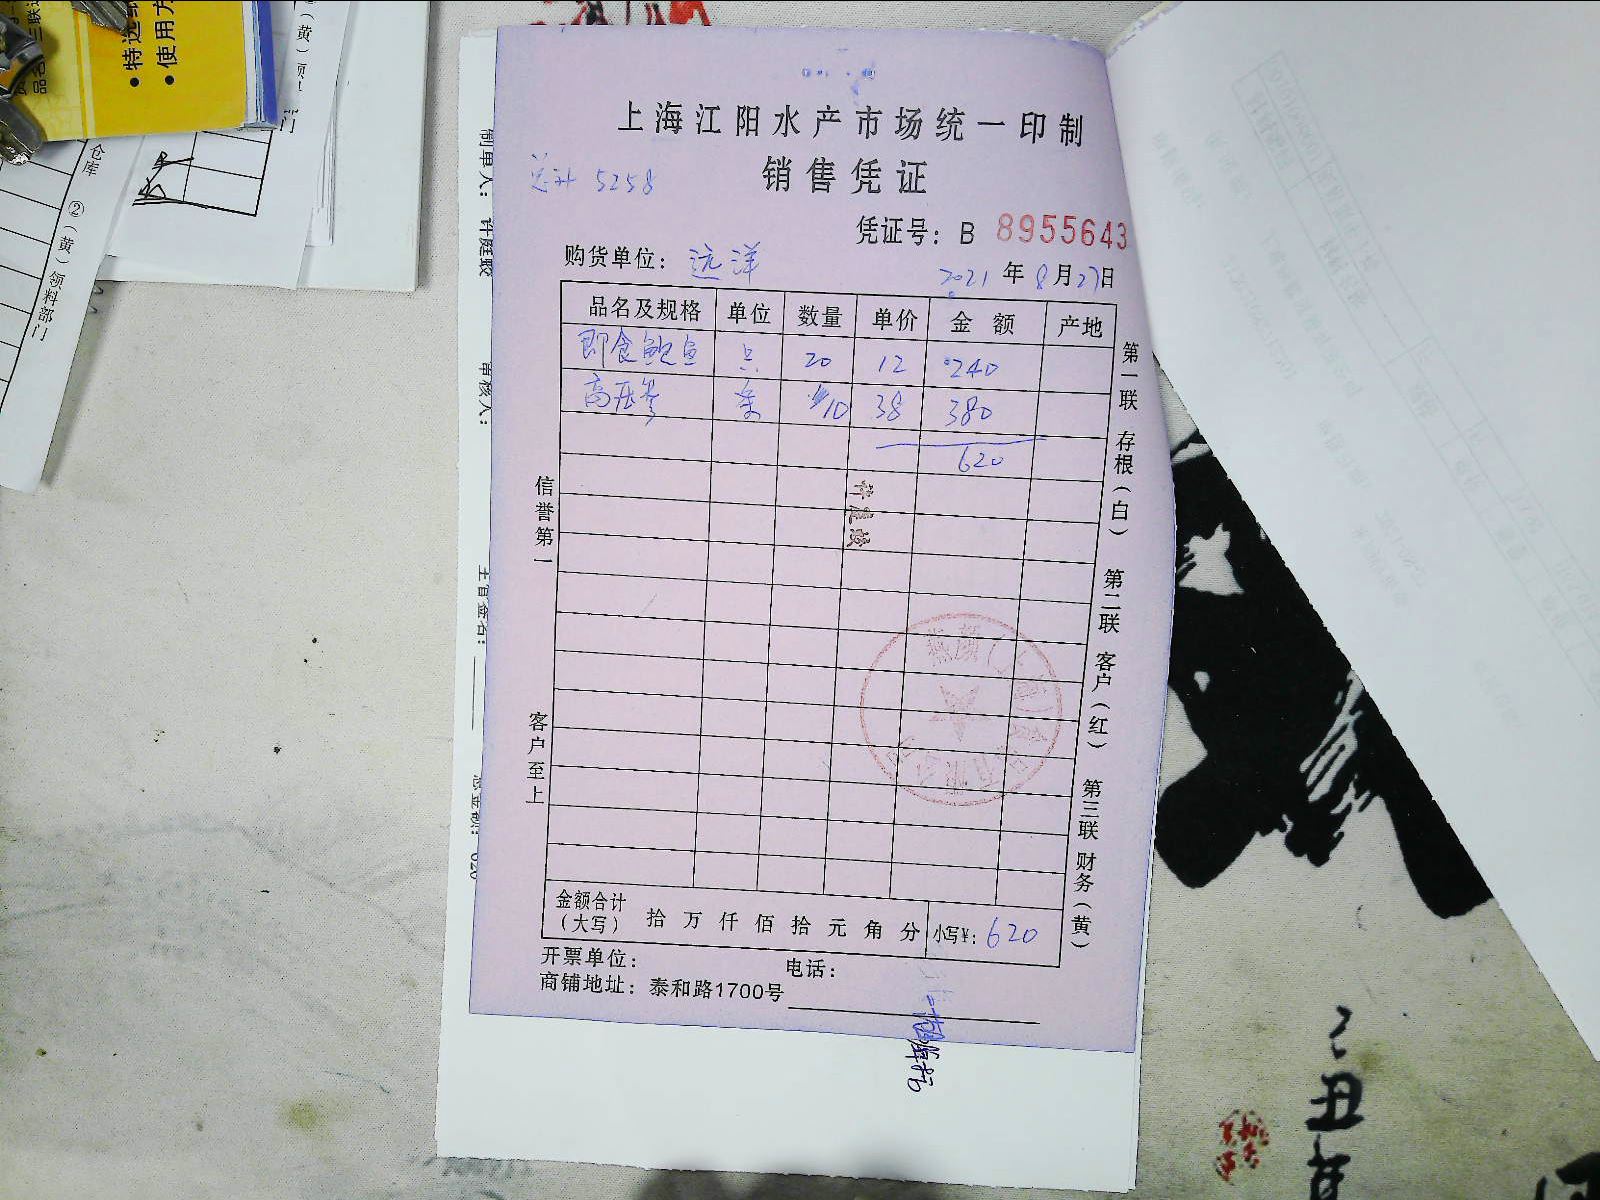 上海江阳水产市场统一印制
销售凭证
总计 5258
凭证号：B 8955643
购货单位：远洋
2021 年 8 月 27 日
品名及规格 单位 数量 单价 金 额 产地
即食鲍鱼 只 20 12 240
高压参 条 10 38 380
620
信誉第一
客户至上
第一联 存根（白） 第二联 客户（红） 第三联 财务（黄）
金额合计（大写） 拾 万 仟 佰 拾 元 角 分 小写¥：620
开票单位： 电话：
商铺地址：泰和路1700号
制单人： 许庭蛟
审核人：
主管签名：
总金额： 620
仓库
②（黄）领料部门
特选纸
使用方